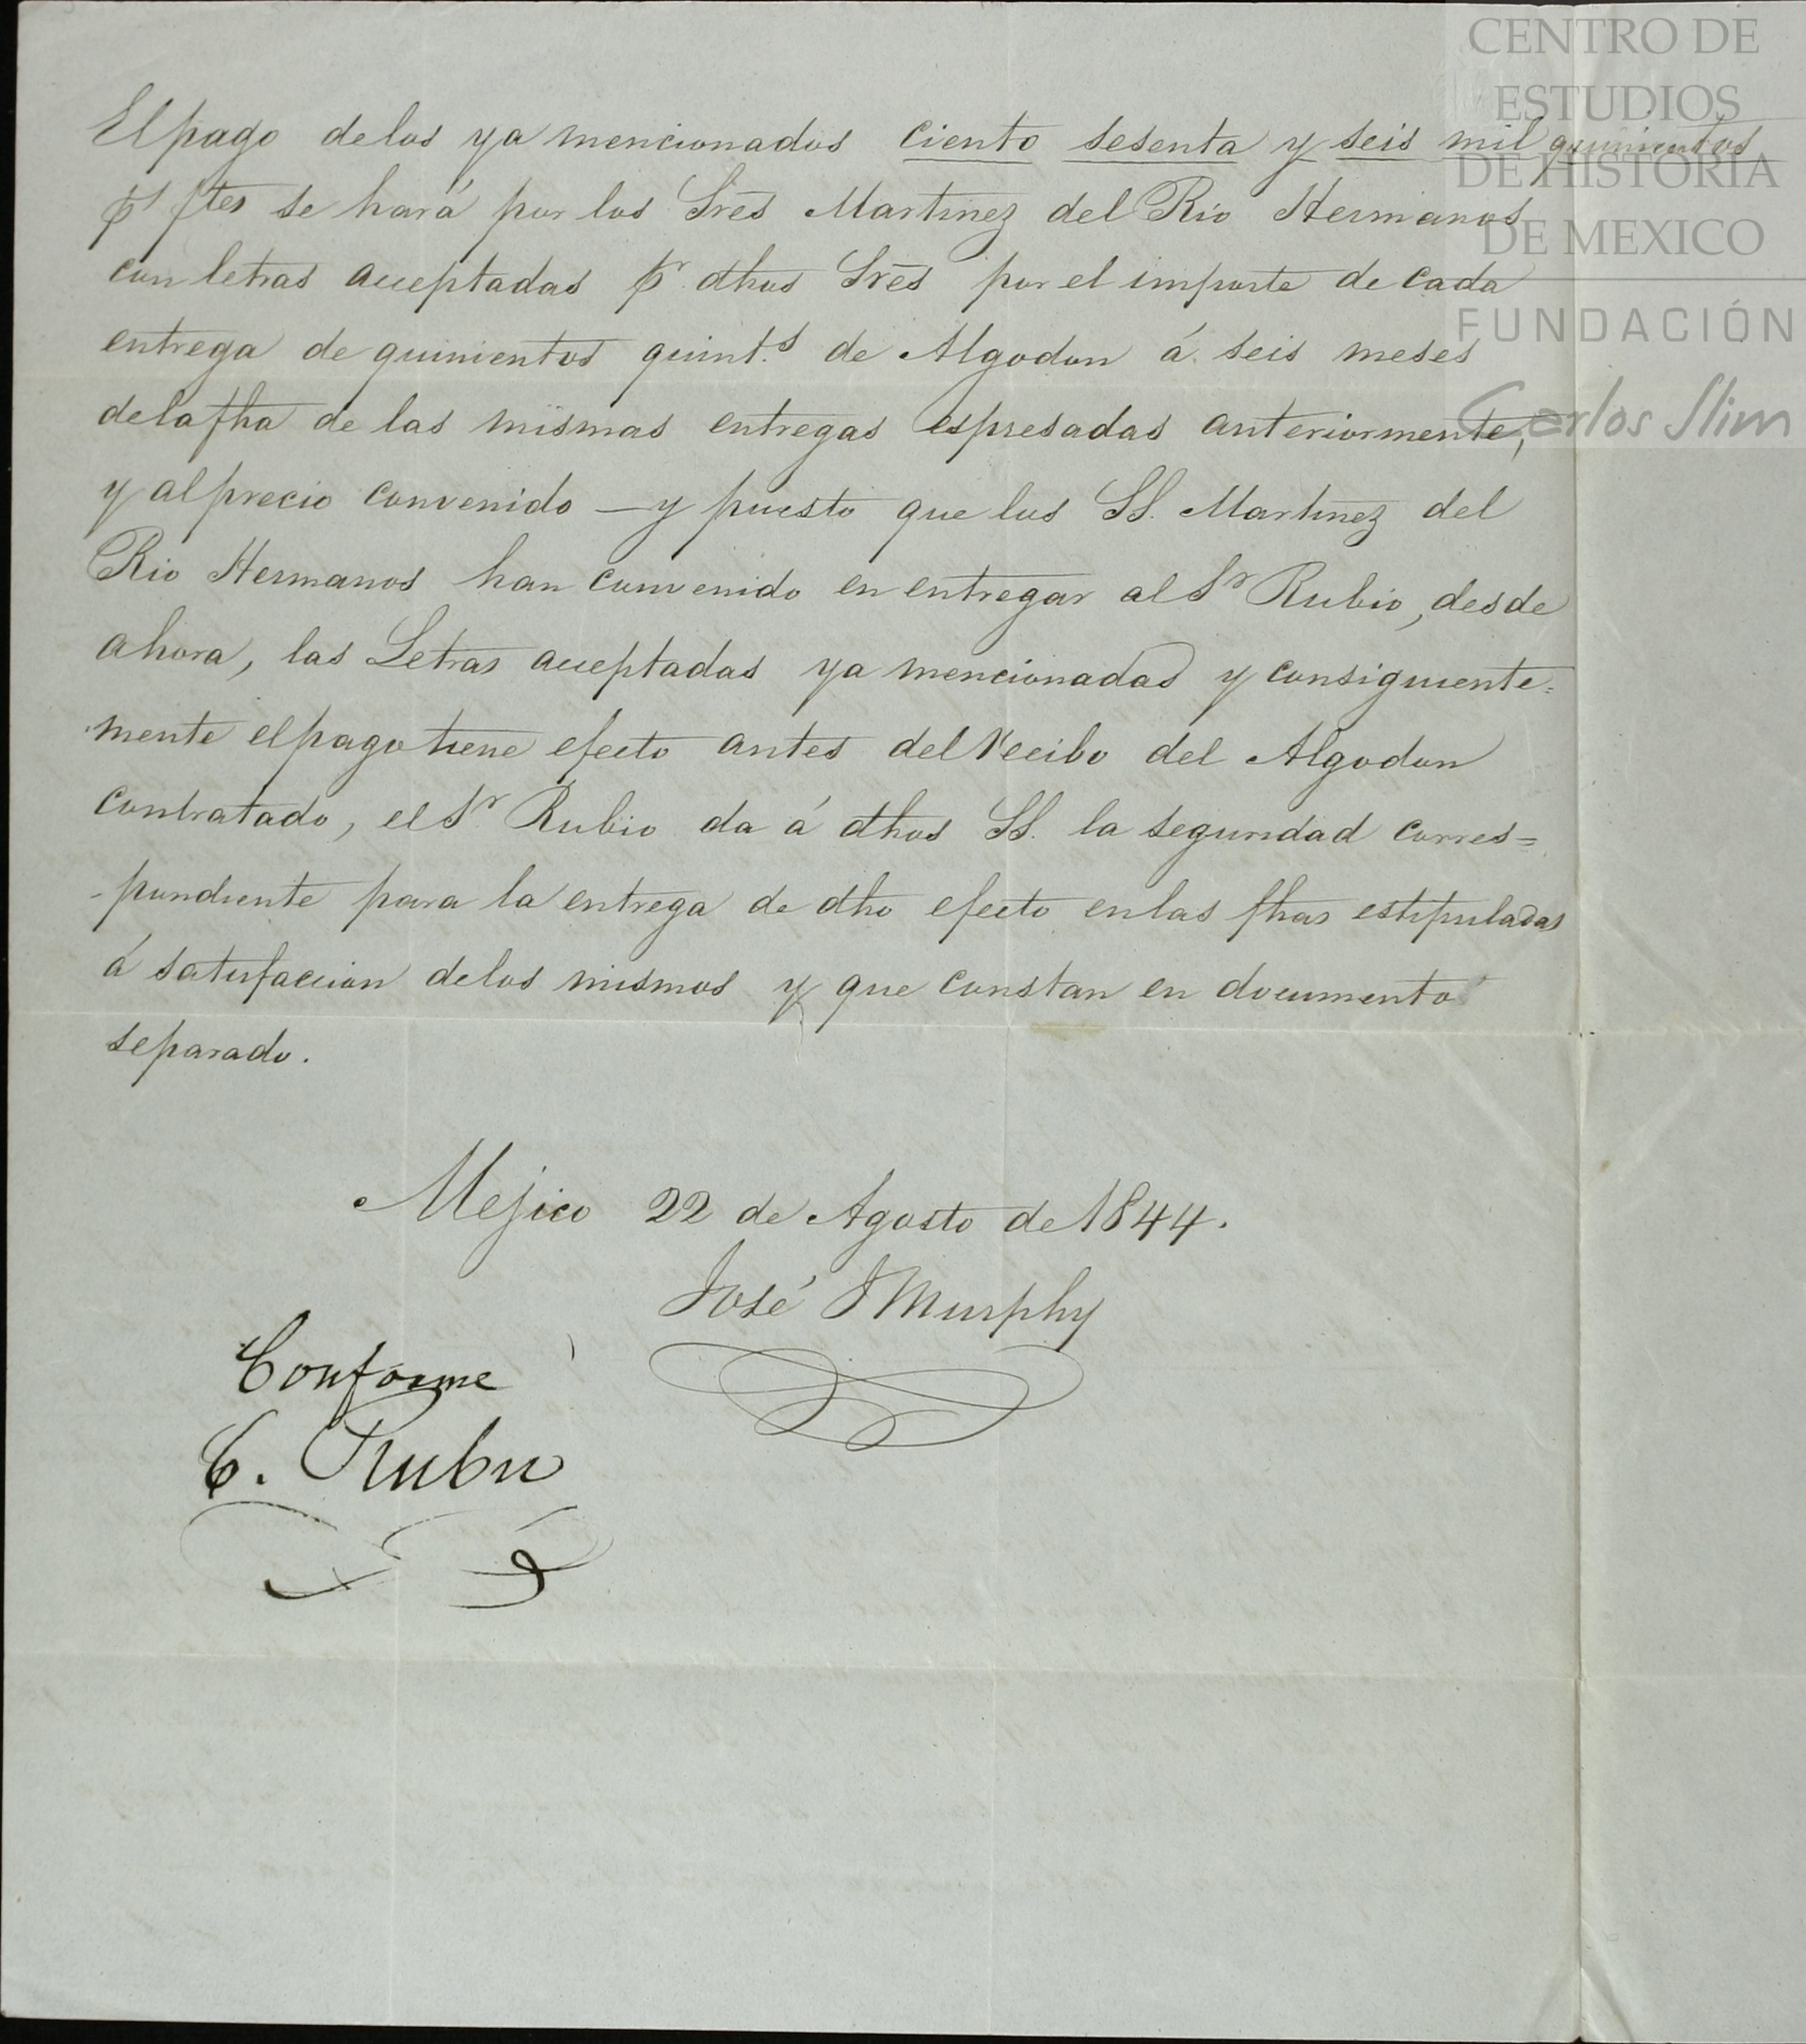 CENTRO DE
ESTUDIOS
DE HISTORIA
DE MEXICO
FUNDACIÓN
Carlos Slim
El pago de los ya mencionados ciento sesenta y seis mil quinientos
p.s ftes se hará por los Sres Martinez del Rio Hermanos
con letras acceptadas pr dhos Sres por el importe de cada
entrega de quinientos quint.s de Algodon á seis meses
de la fha de las mismas entregas espresadas anteriormente,
y al precio convenido — y puesto que los SS. Martinez del
Rio Hermanos han convenido en entregar al Sr Rubio, desde
ahora, las Letras acceptadas ya mencionadas y consiguiente-
mente el pago tiene efecto antes del recibo del Algodon
contratado, el Sr Rubio da á dhos SS. la seguridad corres=
-pondiente para la entrega de dho efecto en las fhas estipuladas
á satisfaccion de los mismos y que constan en documento
separado.
Mejico 22 de Agosto de 1844.
José Murphy
Conforme
C. Rubio